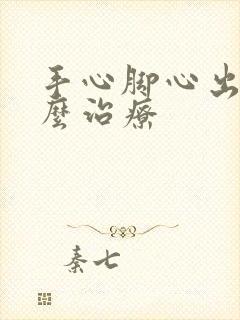 手心脚心出
麼治療
秦七